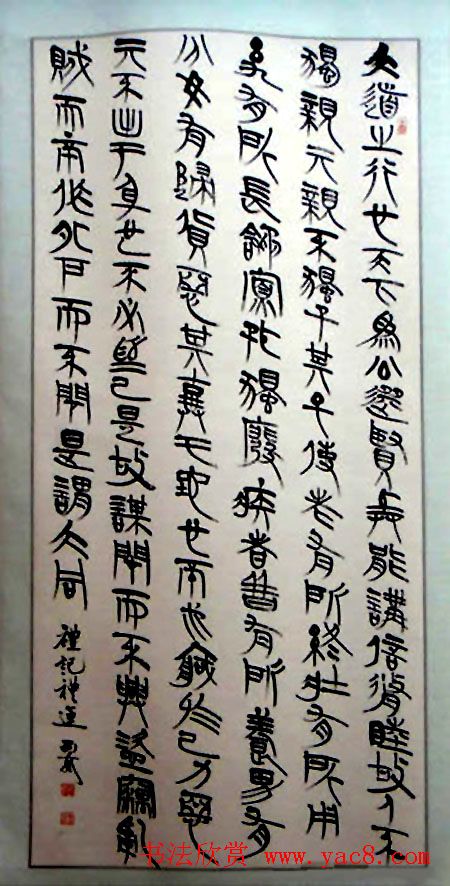 大道之行也天下為公選賢與能講信脩睦故人不
獨親亓親不獨子其子使老有所終壯有所用
幼有所長鰥寡孤獨廢疾者皆有所養男有
分女有歸貨惡其棄于地也不必藏於己力惡
亓不出于身也不必為己是故謀閉而不興盜竊亂
賊而不作外戶而不閉是謂大同
禮記禮運
书法欣赏 www.yac8.com